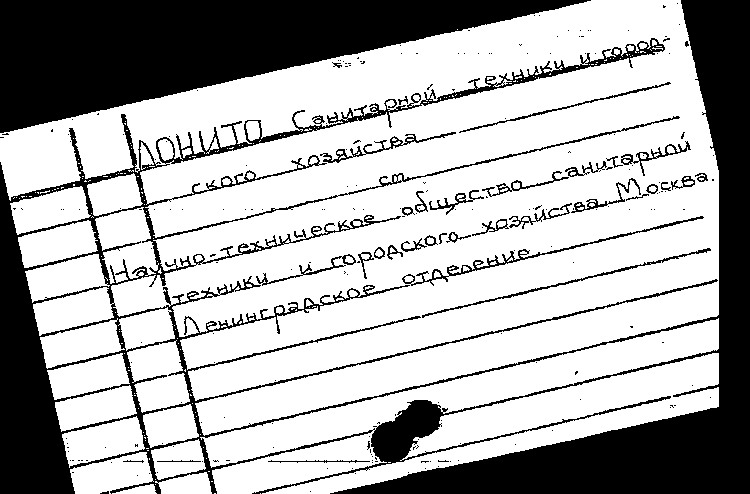 ЛОНИТО Санитарной техники и город-
ского хозяйства
см.
Научно-техническое общество санитарной
техники и городского хозяйства. Москва.
Ленинградское отделение.